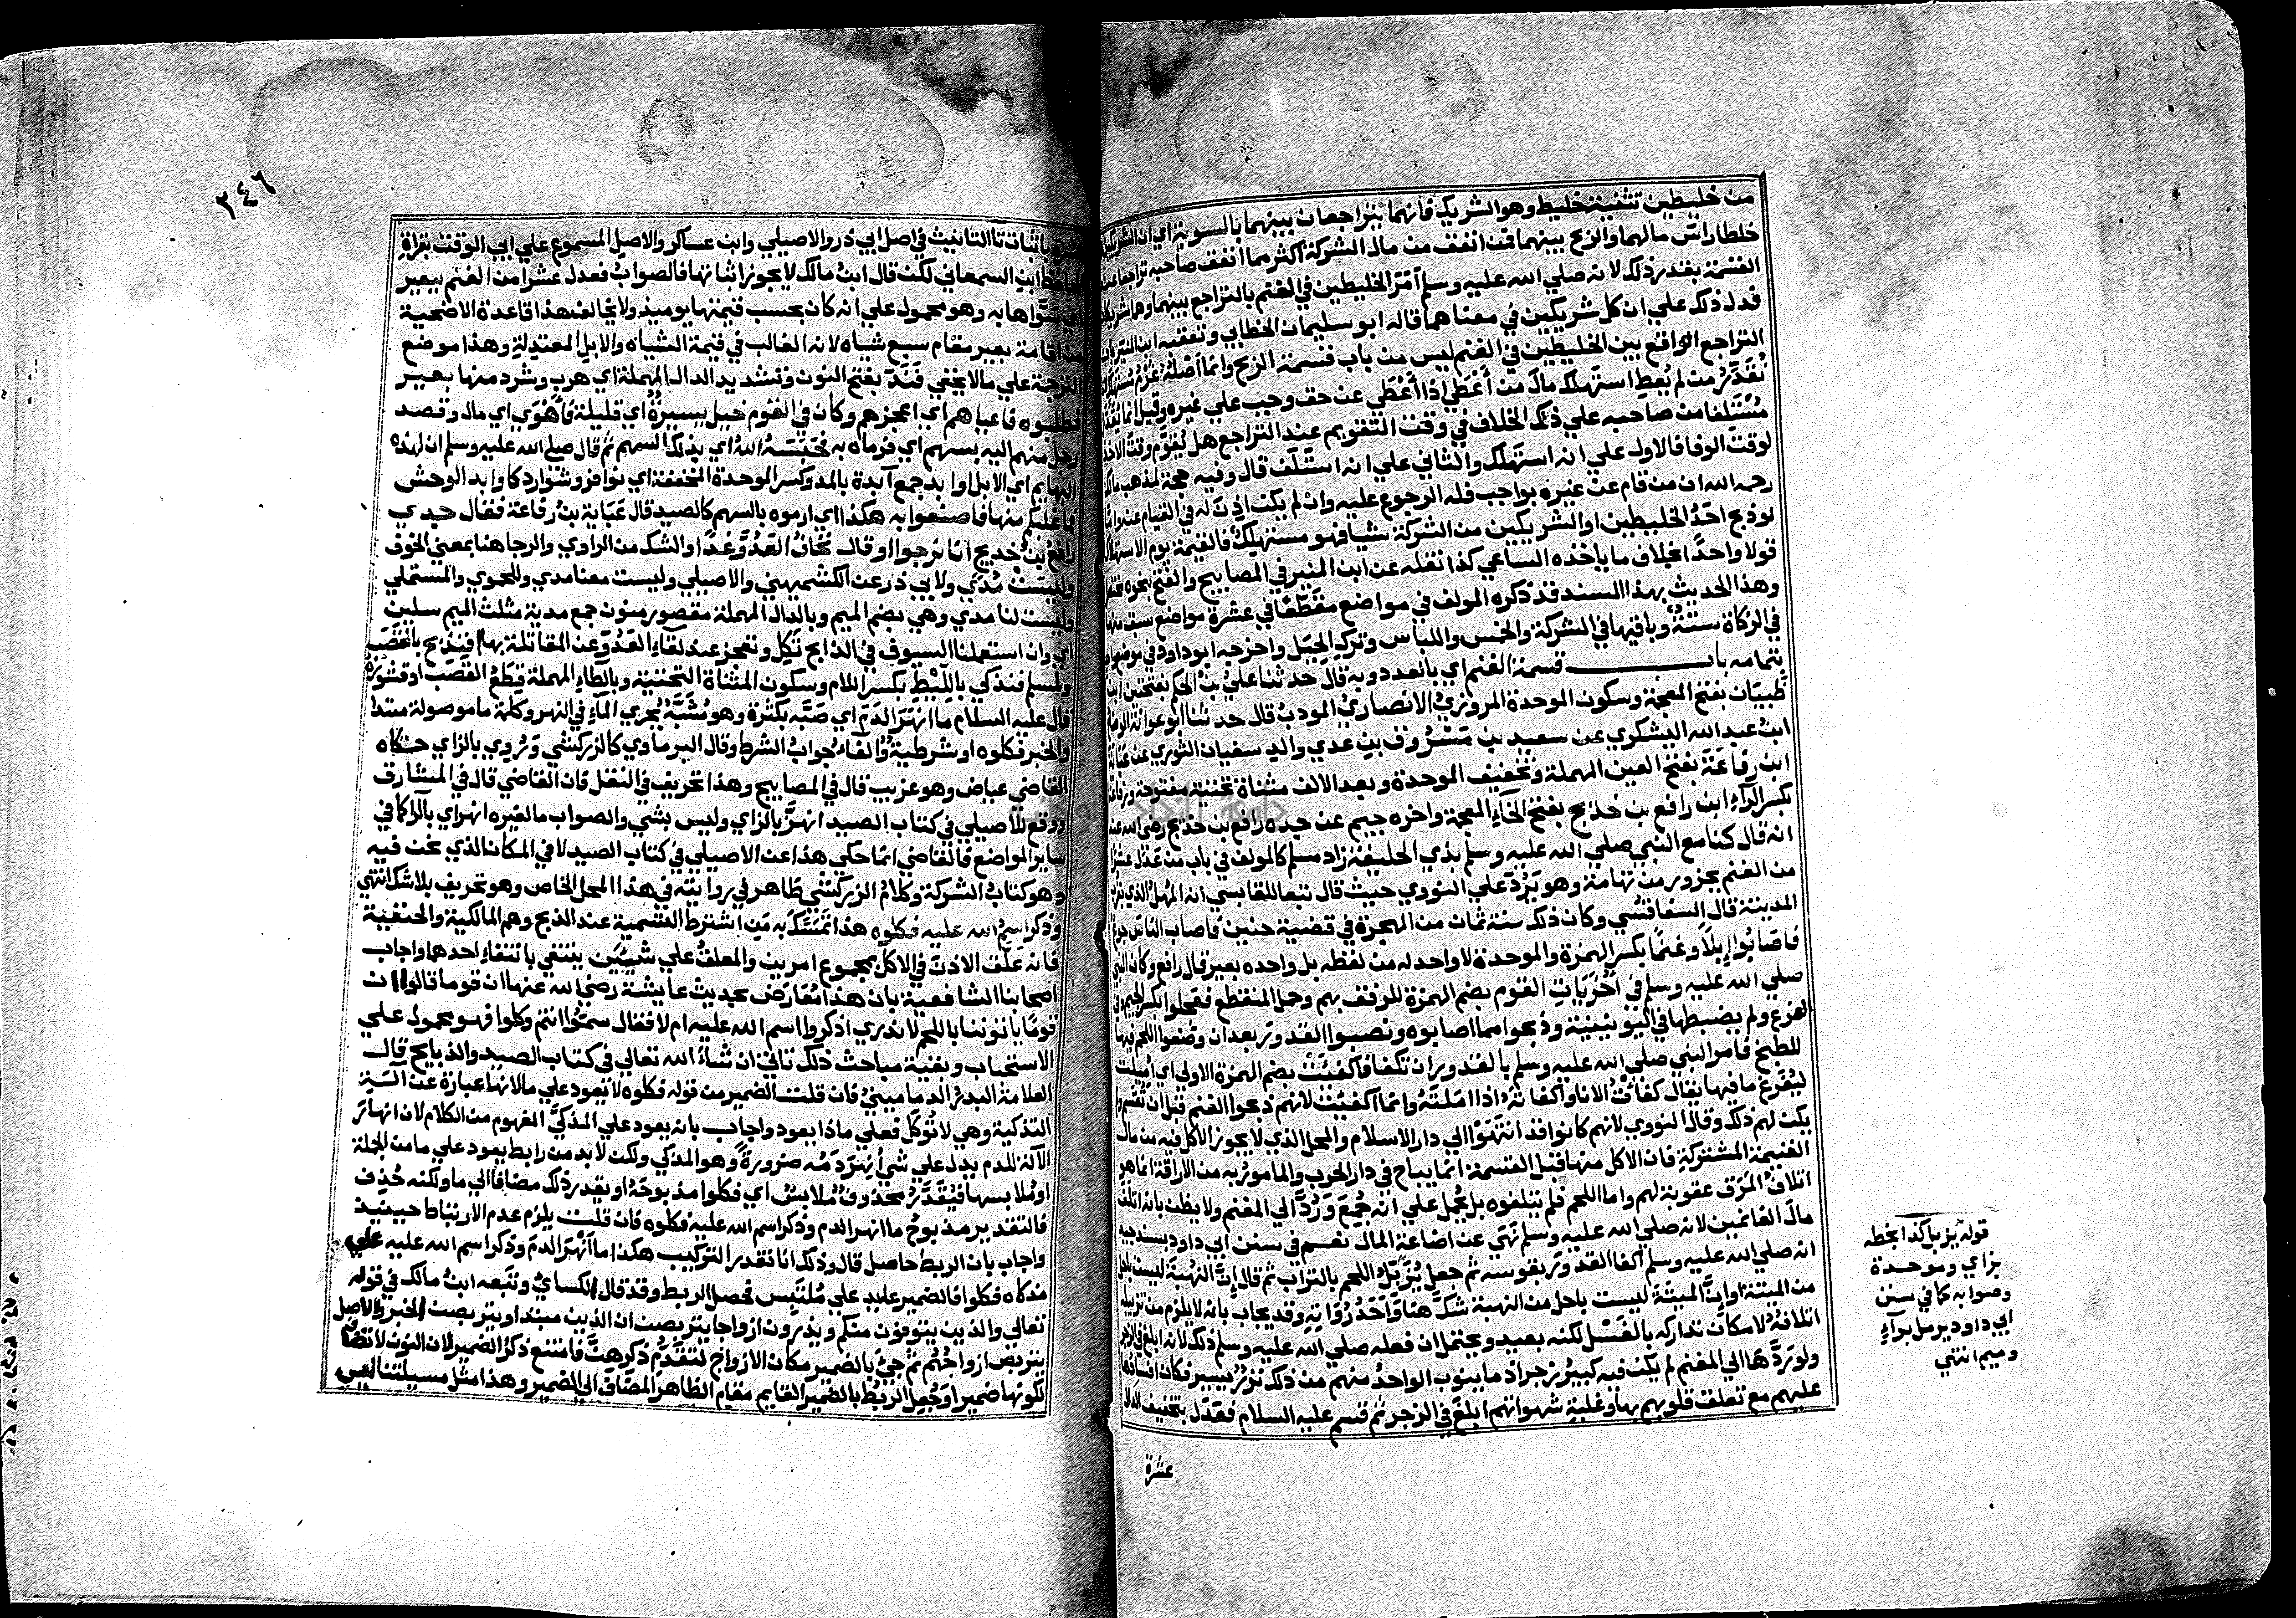 من خليطين تثنية خليط وهو الشريك فانهما يتراجعان بينهما بالسوية اي ان الشريكين
خلطا راس مالهما والربح بينهما فمن انفق من مال الشركة اكثر مما انفق صاحبه تراجعا عند
القسمة بقدر ذلك لانه صلي الله عليه وسلم امر الخليطين في الغنم بالتراجع بينهما وهما شريكان
فدل ذلك علي ان كل شريكين في معناهما قاله ابو سليمان الخطابي وتعقبه ابن المنير بان
التراجع الواقع بين الخليطين في الغنم ليس من باب قسمة الربح وانما اصله غرم مستهلك
نُقَدِّر من لم يُعطِ استهلك مال من اعطي اذا اعطي عن حق وجب علي غيره وقيل انما يُقَدَّر
مستلفا من صاحبه علي ذلك الخلاف في وقت التقويم عند التراجع هل يقوم وقت الاخذ
لوقت الوفا فالاول علي انه استهلك والثاني علي انه استلف قال وفيه حجة لمذهب مالك
رحمه الله ان من قام عن غيره بواجب فله الرجوع عليه وان لم يكن اذن له في القيام عنه واما
لو ذبح احد الخليطين او الشريكين من الشركة شيا فهو مستهلك فالقيمة يوم الاستهلاك
قولا واحدا بخلاف ما ياخذه الساعي كذا نقله عن ابن المنير في المصابيح والفتح بنحوه
وهذا الحديث بهذا السند قد ذكره المولف في مواضع مقطعًا في عشرة مواضع سبق منها
في الزكاة ستة وباقيها في الشركة والخمس واللباس وترك الحِيَل واخرجه ابو داود في موضع واحد
بتمامه باب قسمة الغنم اي بالعدد وبه قال حدثنا علي بن الحكم بفتحتين ابن
ظبيان بفتح المعجمة وسكون الموحدة المروزي الانصاري المودب قال حدثنا ابو عوانة الوضاح
ابن عبد الله اليشكري عن سعيد بن مسروق بن عدي والد سفيان الثوري عن عباية
ابن رفاعة بفتح العين المهملة وتخفيف الموحدة وبعد الالف مثناة تحتية مفتوحة ورفاعة
بكسر الراء ابن رافع بن خديج بفتح الخاء المعجمة واخره جيم عن جده رافع بن خديج رضي الله عنه
انه قال كنا مع النبي صلي الله عليه وسلم بذي الحليفة زاد مسلم كالمولف في باب من عدل عشرا
من الغنم بجزور من تهامة وهو يَرُدّ علي النووي حيث قال تبعا للقابسي انه المهل الذي بقرب
المدينة قال السفاقسي وكان ذلك سنة ثمان من الهجرة في قضية حنين فاصاب الناس جوع
فاصابوا ابلًا وغنمًا بكسر الهمزة والموحدة لا واحد له من لفظه بل واحده بعير قال رافع وكان النبي
صلي الله عليه وسلم في أُخْرَيَات القوم بضم الهمزة للرفق بهم وحمل المنقطع فعجلوا بكسر الجيم وفي
الفزع ولم يضبطها في اليونينية وذبحوا مما اصابوه ونصبوا القدور بعد ان وضعوا اللحم فيها
للطبخ فامر النبي صلي الله عليه وسلم بالقدور ان تكفا فاكفئت بضم الهمزة الاولي اي اميلت
ليُفَرَّغ ما فيها يقال كفات الانا واكفاته اذا املته وانما اكفيت لانهم ذبحوا الغنم قبل ان تقسم ولم
يكن لهم ذلك وقال النووي لانهم كانوا قد انتهوا الي دار الاسلام والمحل الذي لا يجوز الاكل فيه من مال
الغنيمة المشتركة فان الاكل منها قبل القسمة انما يباح في دار الحرب والمامور به من الاراقة انما هو
اتلاف المرق عقوبة لهم واما اللحم فلم يتلفوه بل يحمل علي انه جُمِعَ وَرُدَّ الي المغنم ولا يظن بانه اتلف
مال الغانمين لانه صلي الله عليه وسلم نهي عن اضاعة المال نعم في سنن ابي داود بسند جيد
انه صلي الله عليه وسلم اكفا القدور بقوسه ثم جعل يُزَبِّل اللحم بالتراب ثم قال ان النهبة ليست باحل
من الميتة او ان الميتة ليست باحل من النهبة شك هناد احد رواته وقد يجاب بانه لا يلزم من تزبيله
اتلافه لامكان تداركه بالغسل لكنه بعيد ويحتمل ان فعله صلي الله عليه وسلم ذلك لانه ابلغ في الزجر
ولو ردها الي المغنم لم يكن فيه كبير زجر اذ ما ينوب الواحد منهم من ذلك نزر يسير فكان افسادها
عليهم مع تعلق قلوبهم بها وغلبة شهواتهم ابلغ في الزجر ثم قسم عليه السلام فعدل بتخفيف الدال
عشرة
قوله يزبل كذا بخطه
بزاي وموحدة
وصوابه كما في سنن
ابي داود يرمل براء
وميم انتهي
٢٤٦
عشرة باثبات تا التانيث في اصل ابي ذر والاصيلي وابن عساكر والاصل المسموع علي ابي الوقت بقراة
الحافظ ابن السمعاني لكن قال ابن مالك لا يجوز اثباتها فالصواب فعدل عشرا من الغنم ببعير
اي سواها به وهو محمول علي انه كان بحسب قيمتها يوميذ ولا يخالف هذا قاعدة الاضحية
من اقامة بعير مقام سبع شياه لانه الغالب في قيمة الشياه والابل المعتدلة وهذا موضع
الترجمة علي ما لا يخفي فَنَدَّ بفتح النون وتشديد الدال المهملة اي هرب وشرد منها بعير
فطلبوه فاعياهم اي اعجزهم وكان في القوم خيل يسيرة اي قليلة فاهوي اي مال وقصد
رجل منهم اليه بسهم اي فرماه به فحبسه الله اي بذلك السهم ثم قال صلي الله عليه وسلم ان لهذه
البهايم اي الابل اوابد جمع آبدة بالمد وكسر الموحدة المخففة اي نوافر وشوارد كاوابد الوحش
فما غلبكم منها فاصنعوا به هكذا اي ارموه بالسهم كالصيد قال عَبَاية بن رفاعة فقال جدي
رافع بن خديج انا نرجوا او قال نخاف العدو غدا والشك من الراوي والرجا هنا بمعني الخوف
وليست مُدًي ولابي ذر عن الكشميهني والاصيلي وليست معنا مدي وللحموي والمستملي
وليست لنا مدي وهي بضم الميم وبالدال المهملة مقصور منون جمع مدية مثلث الميم سكين
اي وان استعملنا السيوف في الذبايح تكل وتعجز عند لقاء العدو عن المقاتلة بها افنذبح بالقصب
ولمسلم فنذكي بالليط بكسر اللام وسكون المثناة التحتية وبالطاء المهملة قِطَع القصب او قشوره
قال عليه السلام ما انهر الدم اي صَبَّه بكثرة وهو مُشَبَّه بجري الماء في النهر وكلمة ما موصولة مبتدا
والخبر فكلوه او شرطية والفاء جواب الشرط وقال البرماوي كالزركشي وروي بالزاي حكاه
القاضي عياض وهو غريب قال في المصابيح وهذا تحريف في النقل فان القاضي قال في المشارق
ووقع للاصيلي في كتاب الصيد انهز بالزاي وليس بشي والصواب ما لغيره انهر اي بالراء كما في
ساير المواضع فالقاضي انما حكي هذا عن الاصيلي في كتاب الصيد لا في المكان الذي نحن فيه
وهو كتاب الشركة وكلام الزركشي ظاهر في روايته في هذا المحل الخاص وهو تحريف بلا شك انتهي
وذكر اسم الله عليه فكلوه هذا تمسك به من اشترط التسمية عند الذبح وهم المالكية والحنفية
فانه علق الاذن في الاكل بمجموع امرين والمعلق علي شيين ينتفي بانتفاء احدهما واجاب
اصحابنا الشافعية بان هذا معارض بحديث عايشة رضي الله عنها ان قوما قالوا ان
قومًا ياتوننا باللحم لا ندري اذكروا اسم الله عليه ام لا فقال سموا انتم وكلوا فهو محمول علي
الاستحباب وبقية مباحث ذلك تاتي ان شاء الله تعالي في كتاب الصيد والذبايح قال
العلامة البدر الدماميني فان قلت الضمير من قوله فكلوه لا يعود علي ما لانها عبارة عن آلة
التذكية وهي لا تؤكل فعلي ماذا يعود واجاب بانه يعود علي المذكي المفهوم من الكلام لان انهار
الآلة للدم يدل علي شي اُنهِرَ دَمُه ضرورةً وهو المذكي ولكن لا بد من رابط يعود علي ما من الجملة
او ملابسها فيُقَدَّر محذوف مُلابِس اي فكلوا مذبوحه او يقدر ذلك مضافا الي ما ولكنه حُذِف
فالتقدير مذبوح ما انهر الدم وذكر اسم الله عليه فكلوه فان قلت يلزم عدم الارتباط حينيذ
واجاب بان الربط حاصل قال وذلك انا نقدر التركيب هكذا ما انهر الدم وذكر اسم الله عليه علي
مذكاه فكلوا فالضمير عايد علي مُلتبِس فحصل الربط وقد قال الكسائي وتبعه ابن مالك في قوله
تعالي والذين يتوفون منكم ويذرون ازواجا يتربصن ان الذين مبتدا ويتربصن الخبر والاصل
يتربص ازواجهم ثم جي بالضمير مكان الازواج لتقدم ذكرهن فامتنع ذكر الضمير لان النون لا تضاف
لكونها ضميرا وجعل الربط بالضمير القايم مقام الظاهر المضاف الي الضمير وهذا مثل مسيلتنا